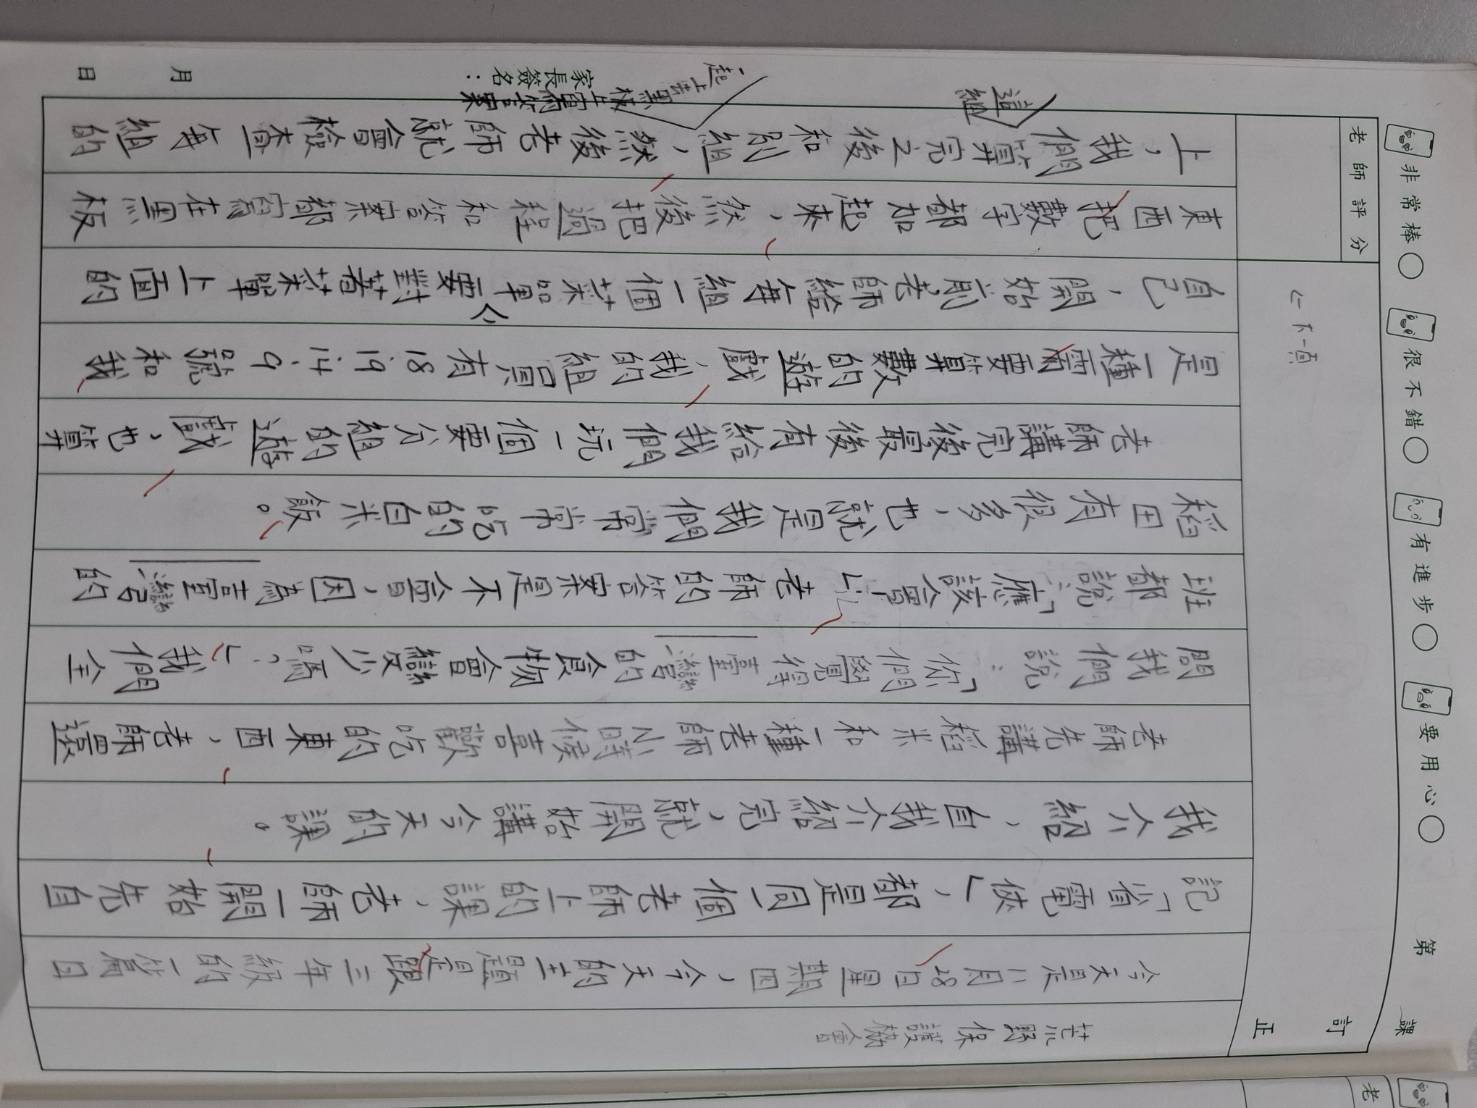 第 課
非常棒○ 很不錯○ 有進步○ 要用心○
老師評分
訂正
荒野保護協會
今天是八月28日星期四，今天的主題是跟三年級的一篇日
記「省電俠」，都是同一個老師上的課，老師一開始先自
我介紹，自我介紹完，就開始講今天的課。
老師先講稻米和一種老師小時候喜歡吃的東西，老師還
問我們說：「你們覺得臺灣的食物會變少嗎？」我們全
班都說：「應該會！」老師的答案是不會，因為臺灣的
稻田有很多，也就是我們常常吃的白米飯。
老師講完後最後有給我們玩一個要分組的遊戲，也算
是一種需要算數的遊戲，我的組員有18.19.14.9號和我
自己，開始前老師給每組一個菜單要對著菜單上面的
東西把數字都加起來，然後把過程和答案都寫在黑板
上，我們算完之後和別組，然後老師就會檢查每組的
這組
下一頁
家長簽名：
月 日